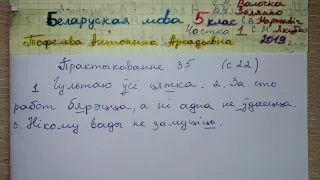 Беларуская мова 5 клас
Валочка
Зелянко
Мартынкевіч
Якуба
Частка 1
2019
Тофелева Антонина Аркадьевна
Практыкаванне 35 (с 22)
1 Гультаю ўсё цяжка. 2. За сто
работ бярэцца, а ні адна не ўдаецца.
3. Нікому вады не замуціць.